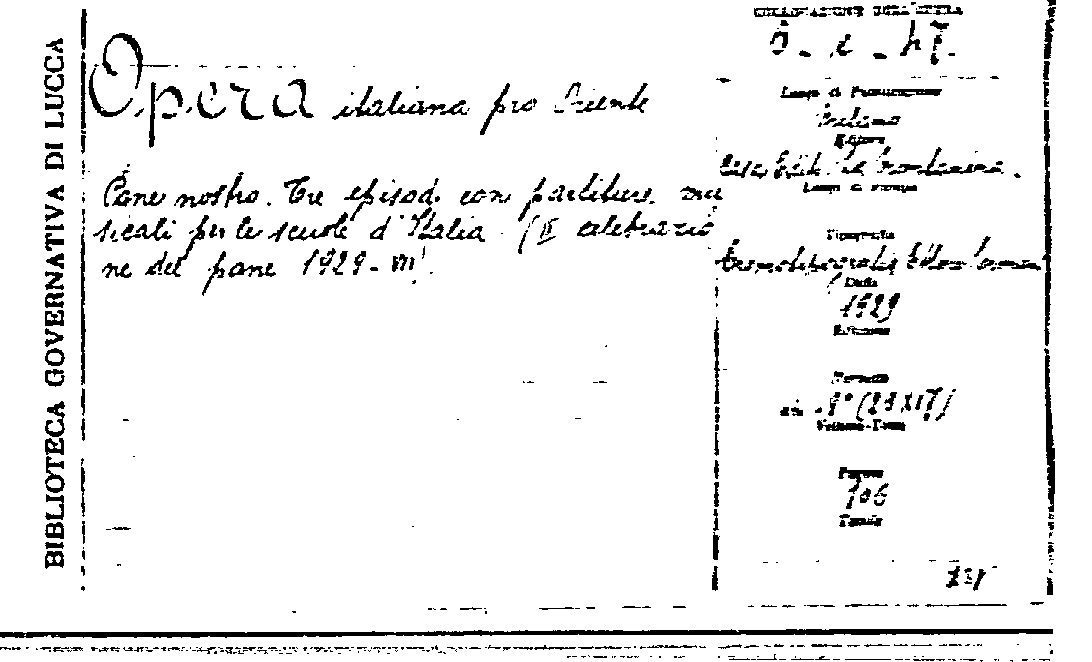 BIBLIOTECA GOVERNATIVA DI LUCCA
Opera italiana pro Oriente
Pane nostro. Tre episod. con partiture mu
sicali per le scuole d'Italia (II celebrazio
ne del pane 1929-VII)
COLLOCAZIONE DELL'OPERA
Luogo di Pubblicazione
Milano
Editore
Casa Edit. La
Luogo di stampa
Tipografia
Data
1929
Edizione
Formato
in 8° (23x17)
Volume-Tomo
Pagine
106
Tavole